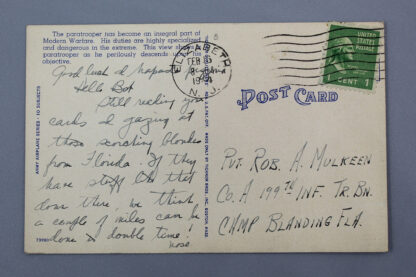 The paratrooper has become an integral part of
Modern Warfare. His duties are highly specialized
and dangerous in the extreme. This view shows
paratrooper as he perilously descends
objective.
Good luck &
Hello Bob
Still reading your
cards & gazing at
those scorching blondes
from Florida. If they
have stuff like that
down there we think
a couple of miles can be
done & double time!
ARMY AIRPLANE SERIES - 10 SUBJECTS
ELIZABETH
FEB
N.J.
UNITED STATES
POSTAGE
1 CENT 1
POST CARD
Pvt. Rob. A. Mulkeen
Co. A 199TH Inf. Tr. Bn.
CAMP BLANDING FLA.